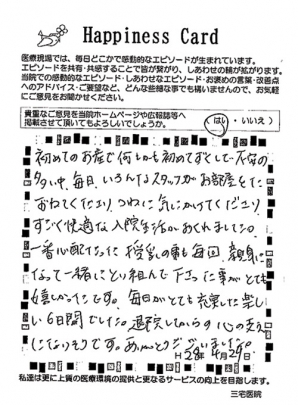 Happiness Card
医療現場では、毎日どこかで感動的なエピソードが生まれています。
エピソードを共有・共感することで皆が繋がり、しあわせの輪が拡がります。
当院での感動的なエピソード・しあわせなエピソード・お褒めの言葉・改善点
へのアドバイス・ご要望など、どんな些細な事でも構いませんので、お気軽
にご意見をお聞かせください。
貴重なご意見を当院ホームページや広報誌等へ
掲載させて頂いてもよろしいでしょうか。
(はい・いいえ)
初めてのお産で何もかも初めてずくしで不安な
多い中、毎日、いろんなスタッフがお部屋をた
ずねてくださり、つねに気にかけてくださり
すごく快適な入院生活がおくれました。
一番心配だった授乳の事も毎回、親身に
なって一緒にとり組んで下さった事がとても
嬉しかったです。毎日がとても充実した楽し
い6日間でした。退院してからの心の支え
になりそうです。ありがとうございました。
H28年4月29日
私達は更に上質の医療環境の提供と更なるサービスの向上を目指します。
三宅医院